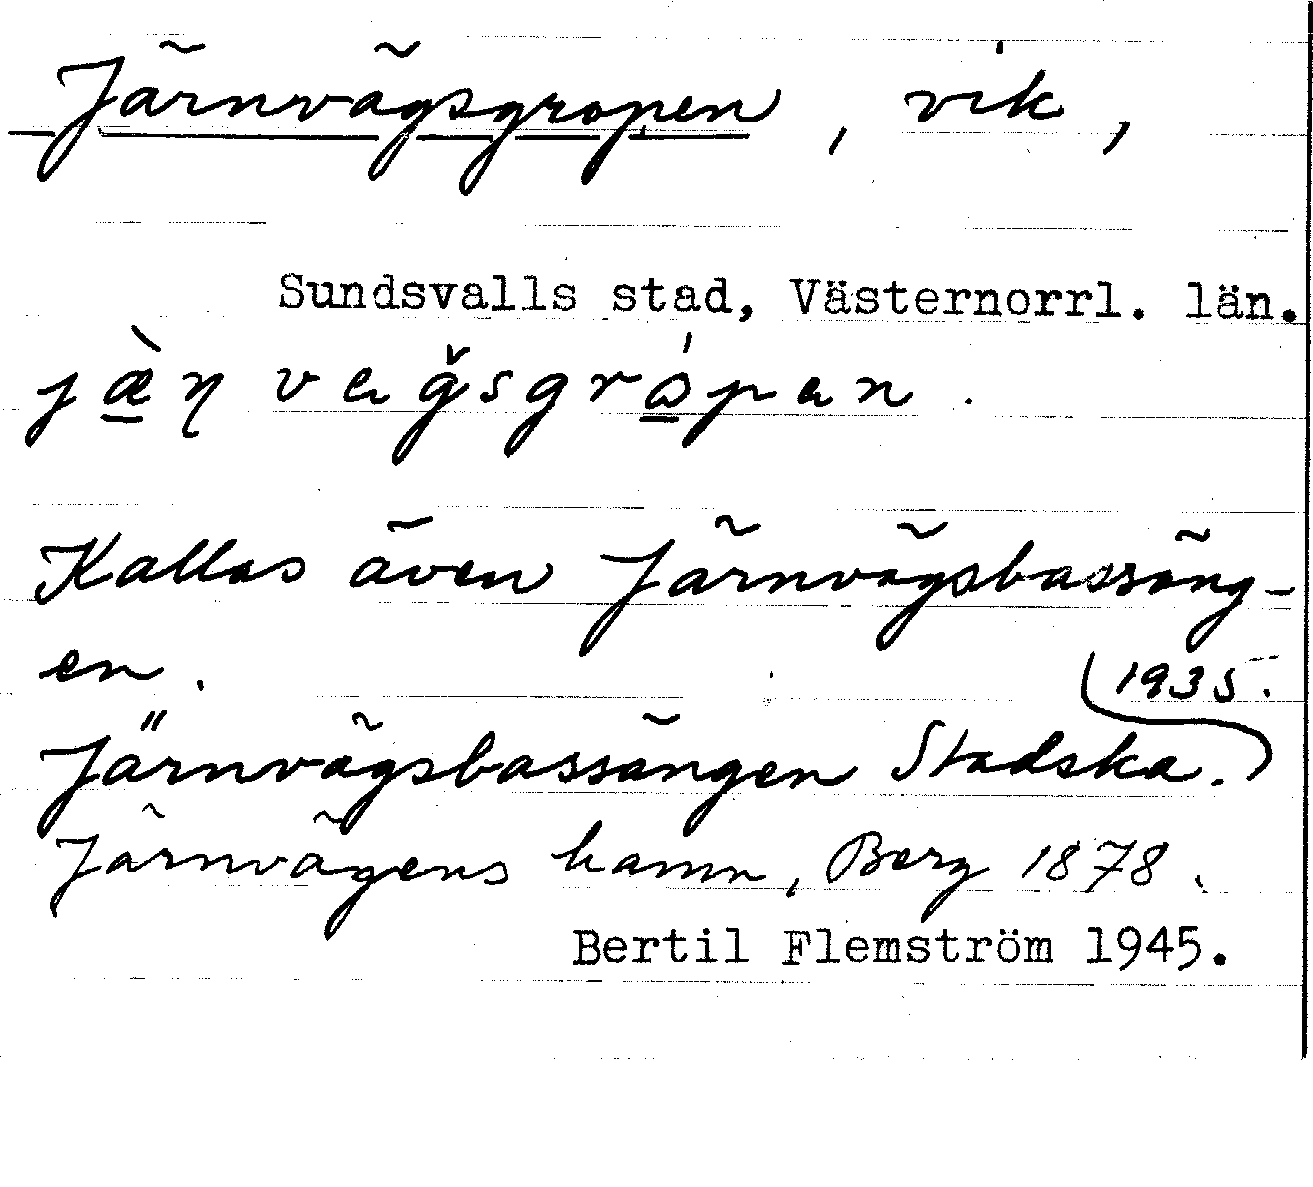 Järnvägsgropen, vik,
Sundsvalls stad, Västernorrl. län.
Kallas även Järnvägsbassäng-
en.
1935.
Järnvägsbassängen Stadska.
Järnvägens hamn, Berg 1878.
Bertil Flemström 1945.